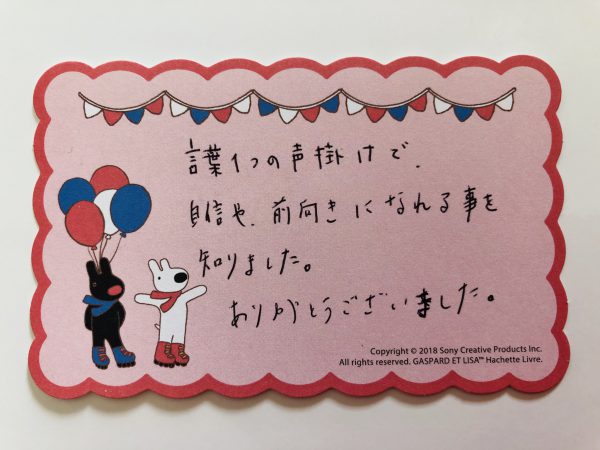 言葉1つの声掛けで、
自信や、前向きになれる事を
知りました。
ありがとうございました。
Copyright © 2018 Sony Creative Products Inc.
All rights reserved. GASPARD ET LISA™ Hachette Livre.